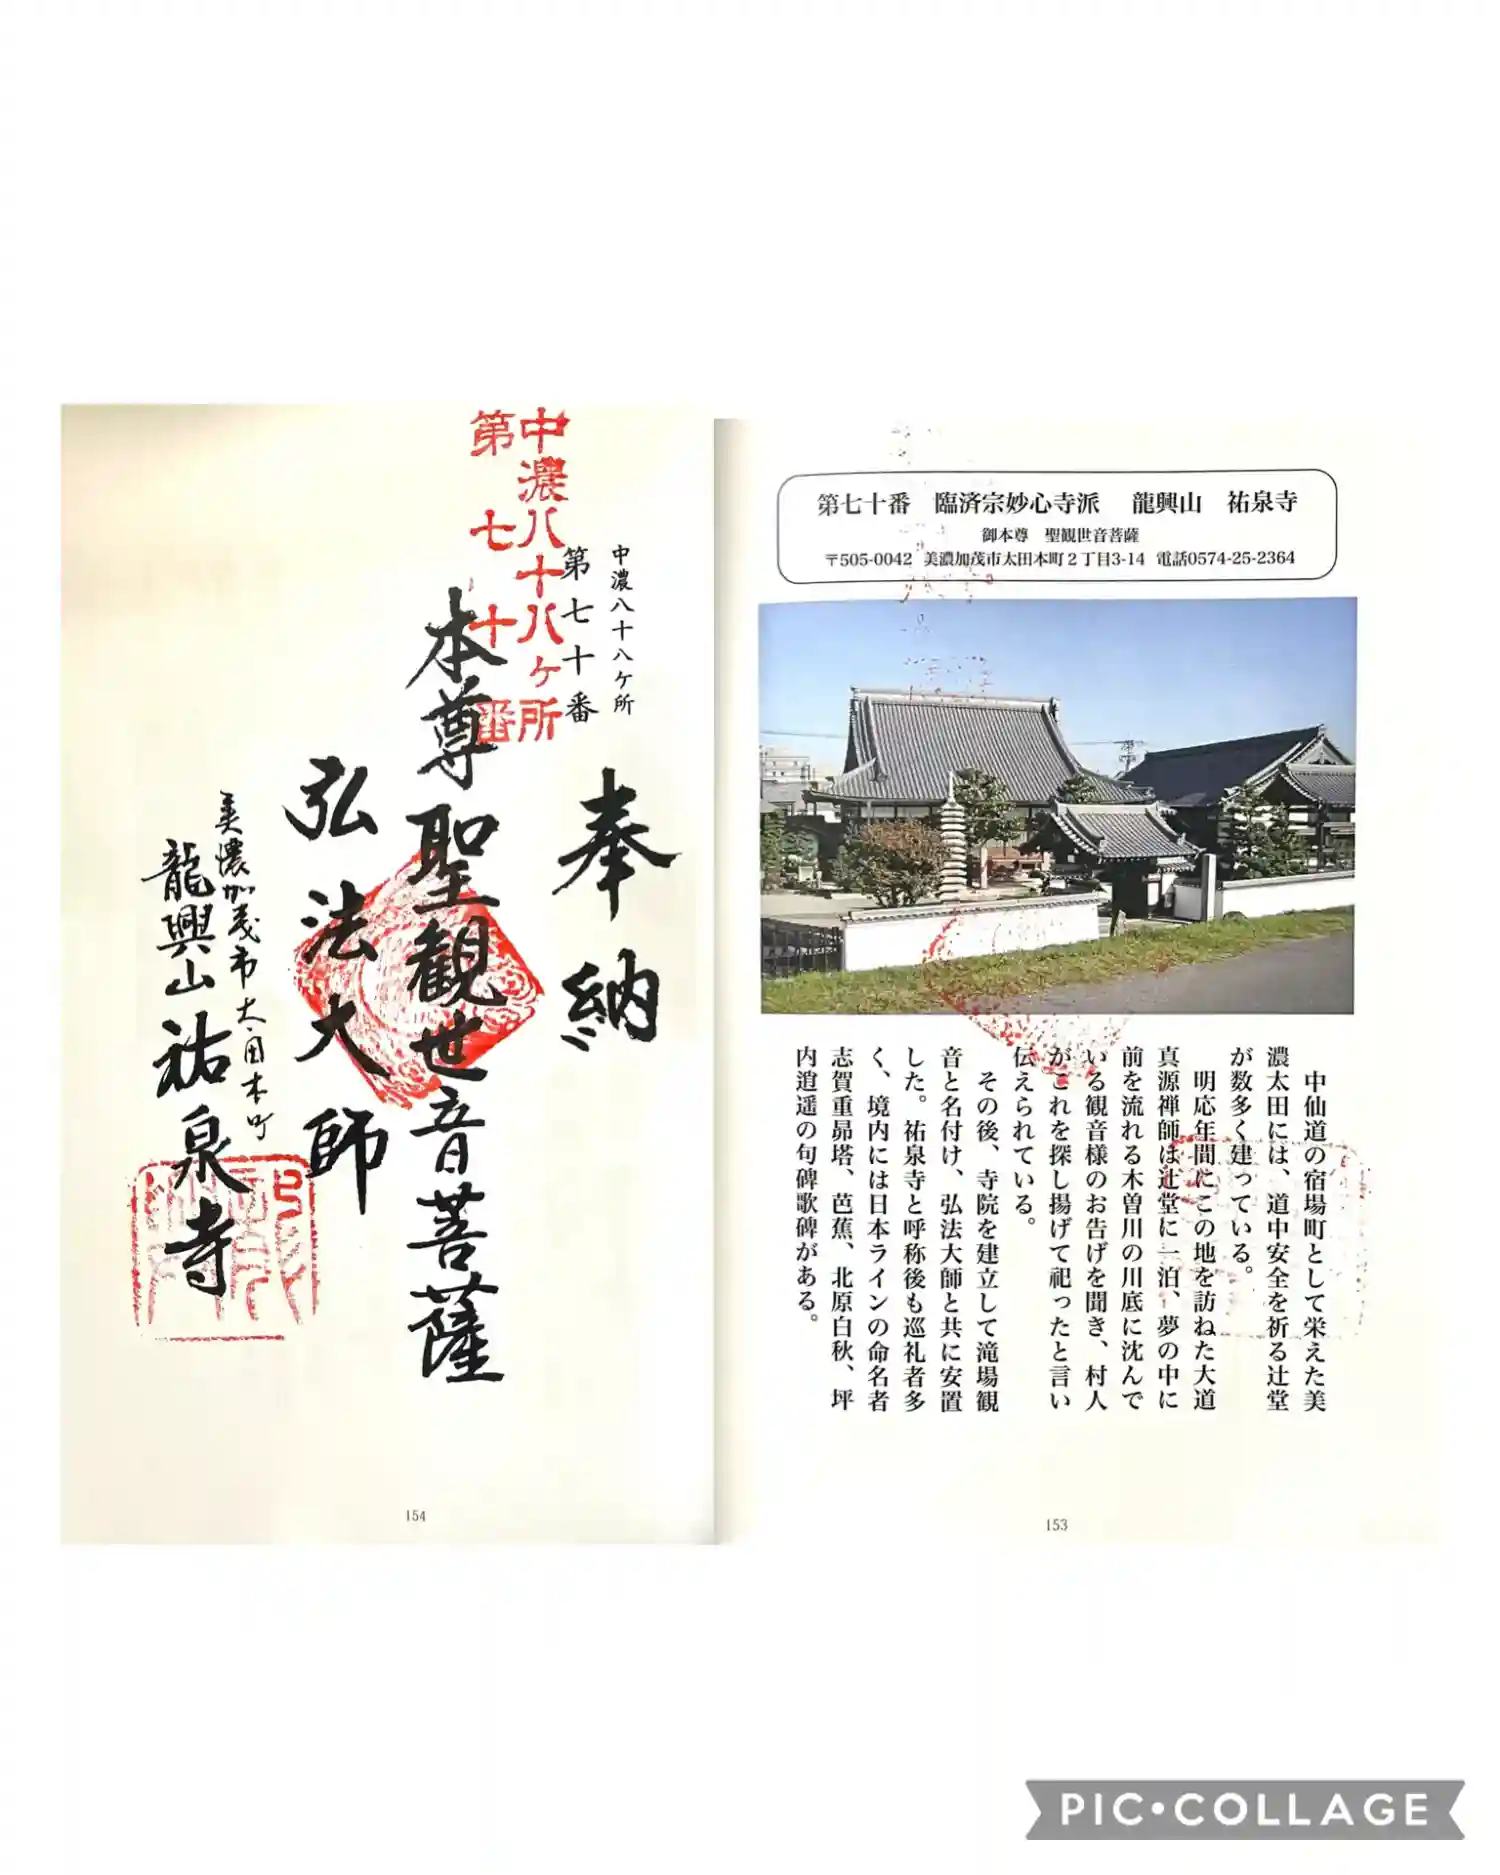 第七十番　臨済宗妙心寺派　龍興山　祐泉寺
御本尊　聖観世音菩薩
〒505-0042　美濃加茂市太田本町２丁目3-14　電話0574-25-2364
中仙道の宿場町として栄えた美
濃太田には、道中安全を祈る辻堂
が数多く建っている。
明応年間にこの地を訪ねた大道
真源禅師は辻堂に一泊、夢の中に
前を流れる木曽川の川底に沈んで
いる観音様のお告げを聞き、村人
がこれを探し揚げて祀ったと言い
伝えられている。
その後、寺院を建立して滝場観
音と名付け、弘法大師と共に安置
した。祐泉寺と呼称後も巡礼者多
く、境内には日本ラインの命名者
志賀重昴塔、芭蕉、北原白秋、坪
内逍遥の句碑歌碑がある。
153
中濃八十八ケ所
第七十番
中濃八十八ヶ所
第七十番
奉納
本尊聖観世音菩薩
弘法大師
美濃加茂市太田本町
龍興山祐泉寺
154
PIC•COLLAGE